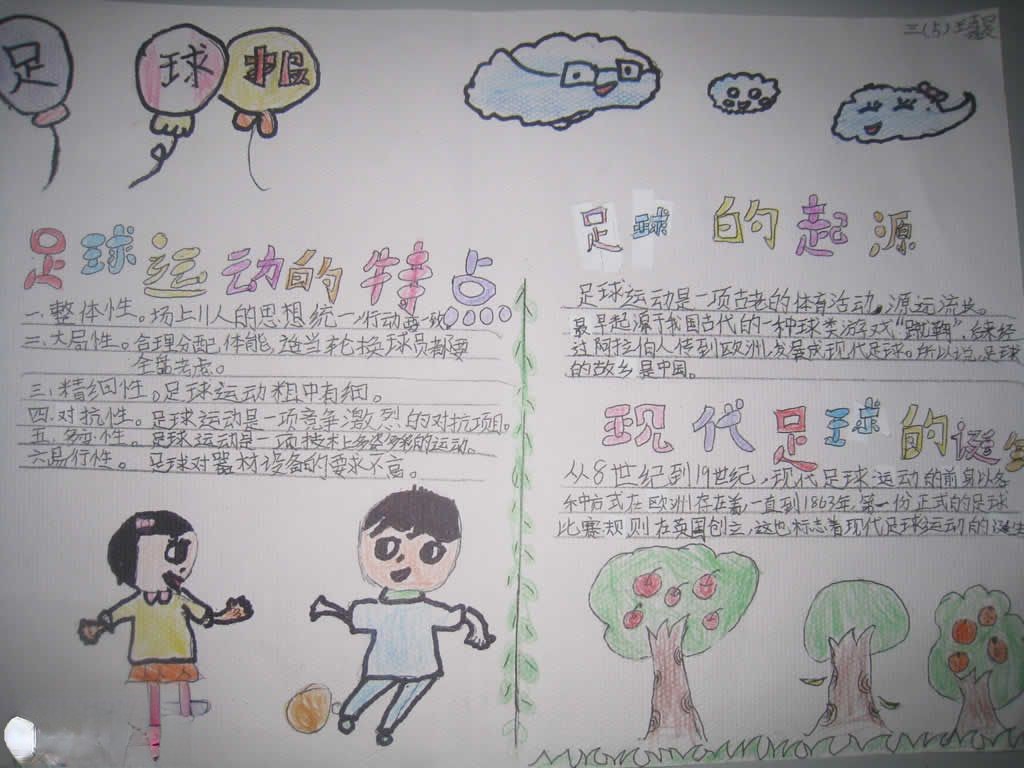 足球报
三(5)
足球运动的特点
一、整体性。场上11人的思想统一,行动要一致。
三、大局性。合理分配体能,适当轮换球员都要
全盘考虑。
三、精细性。足球运动粗中有细。
四、对抗性。足球运动是一项竞争激烈的对抗项目。
五、多变性。足球运动是一项技术上多姿多彩的运动。
六易行性。足球对器材设备的要求不高。
足球的起源
足球运动是一项古老的体育活动,源远流长。
最早起源于我国古代的一种球类游戏“蹴鞠”,后来经
过阿拉伯人传到欧洲,发展成现代足球。所以说,足球
的故乡是中国。
现代足球的诞生
从8世纪到19世纪,现代足球运动的前身以各
种方式在欧洲存在着一直到1863年,第一份正式的足球
比赛规则在英国创立,这也标志着现代足球运动的诞生